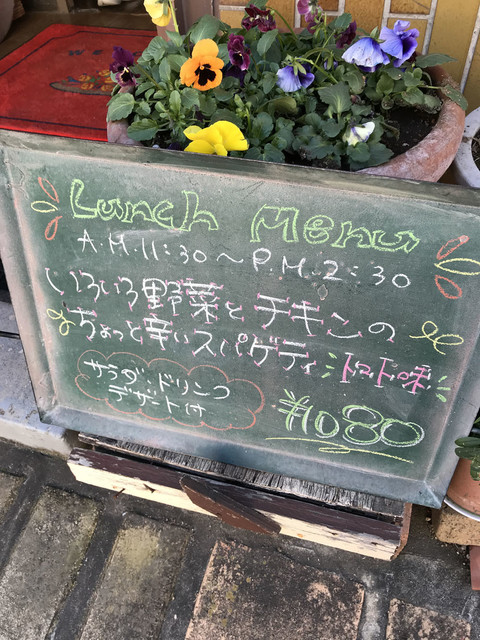 Lunch Menu
A.M.11:30～P.M.2:30
いろいろ野菜とチキンの
ちょっと辛いスパゲティ トマト味
サラダ・ドリンク
デザート付
¥1080